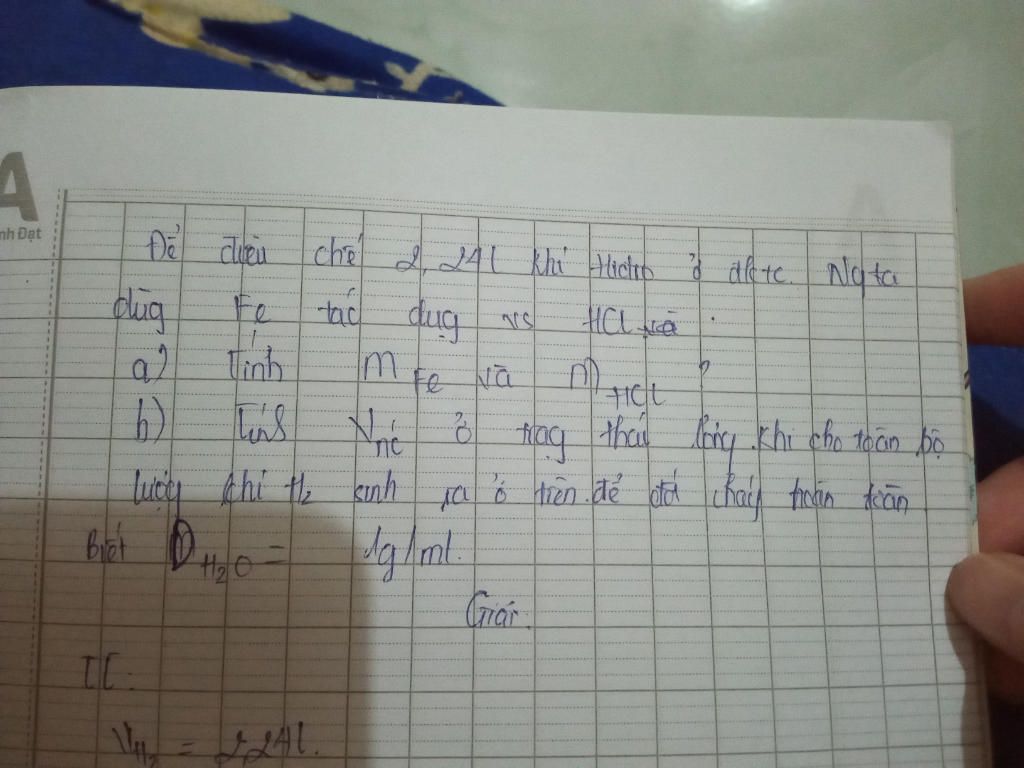 A
nh Đạt
Để điều chế 2,24l khí Hiđrô ở đktc. Ng ta
dùg Fe tác dụg vs HCl
a) Tính m Fe và m HCl ?
b) Tính V nc ở trạg thái lỏng khi cho toàn bộ
lượg khí H2 sinh ra ở trên để đốt cháy hoàn toàn
Biết D H2O = 1g/ml.
Giải.
TT:
VH2 = 2,24l.